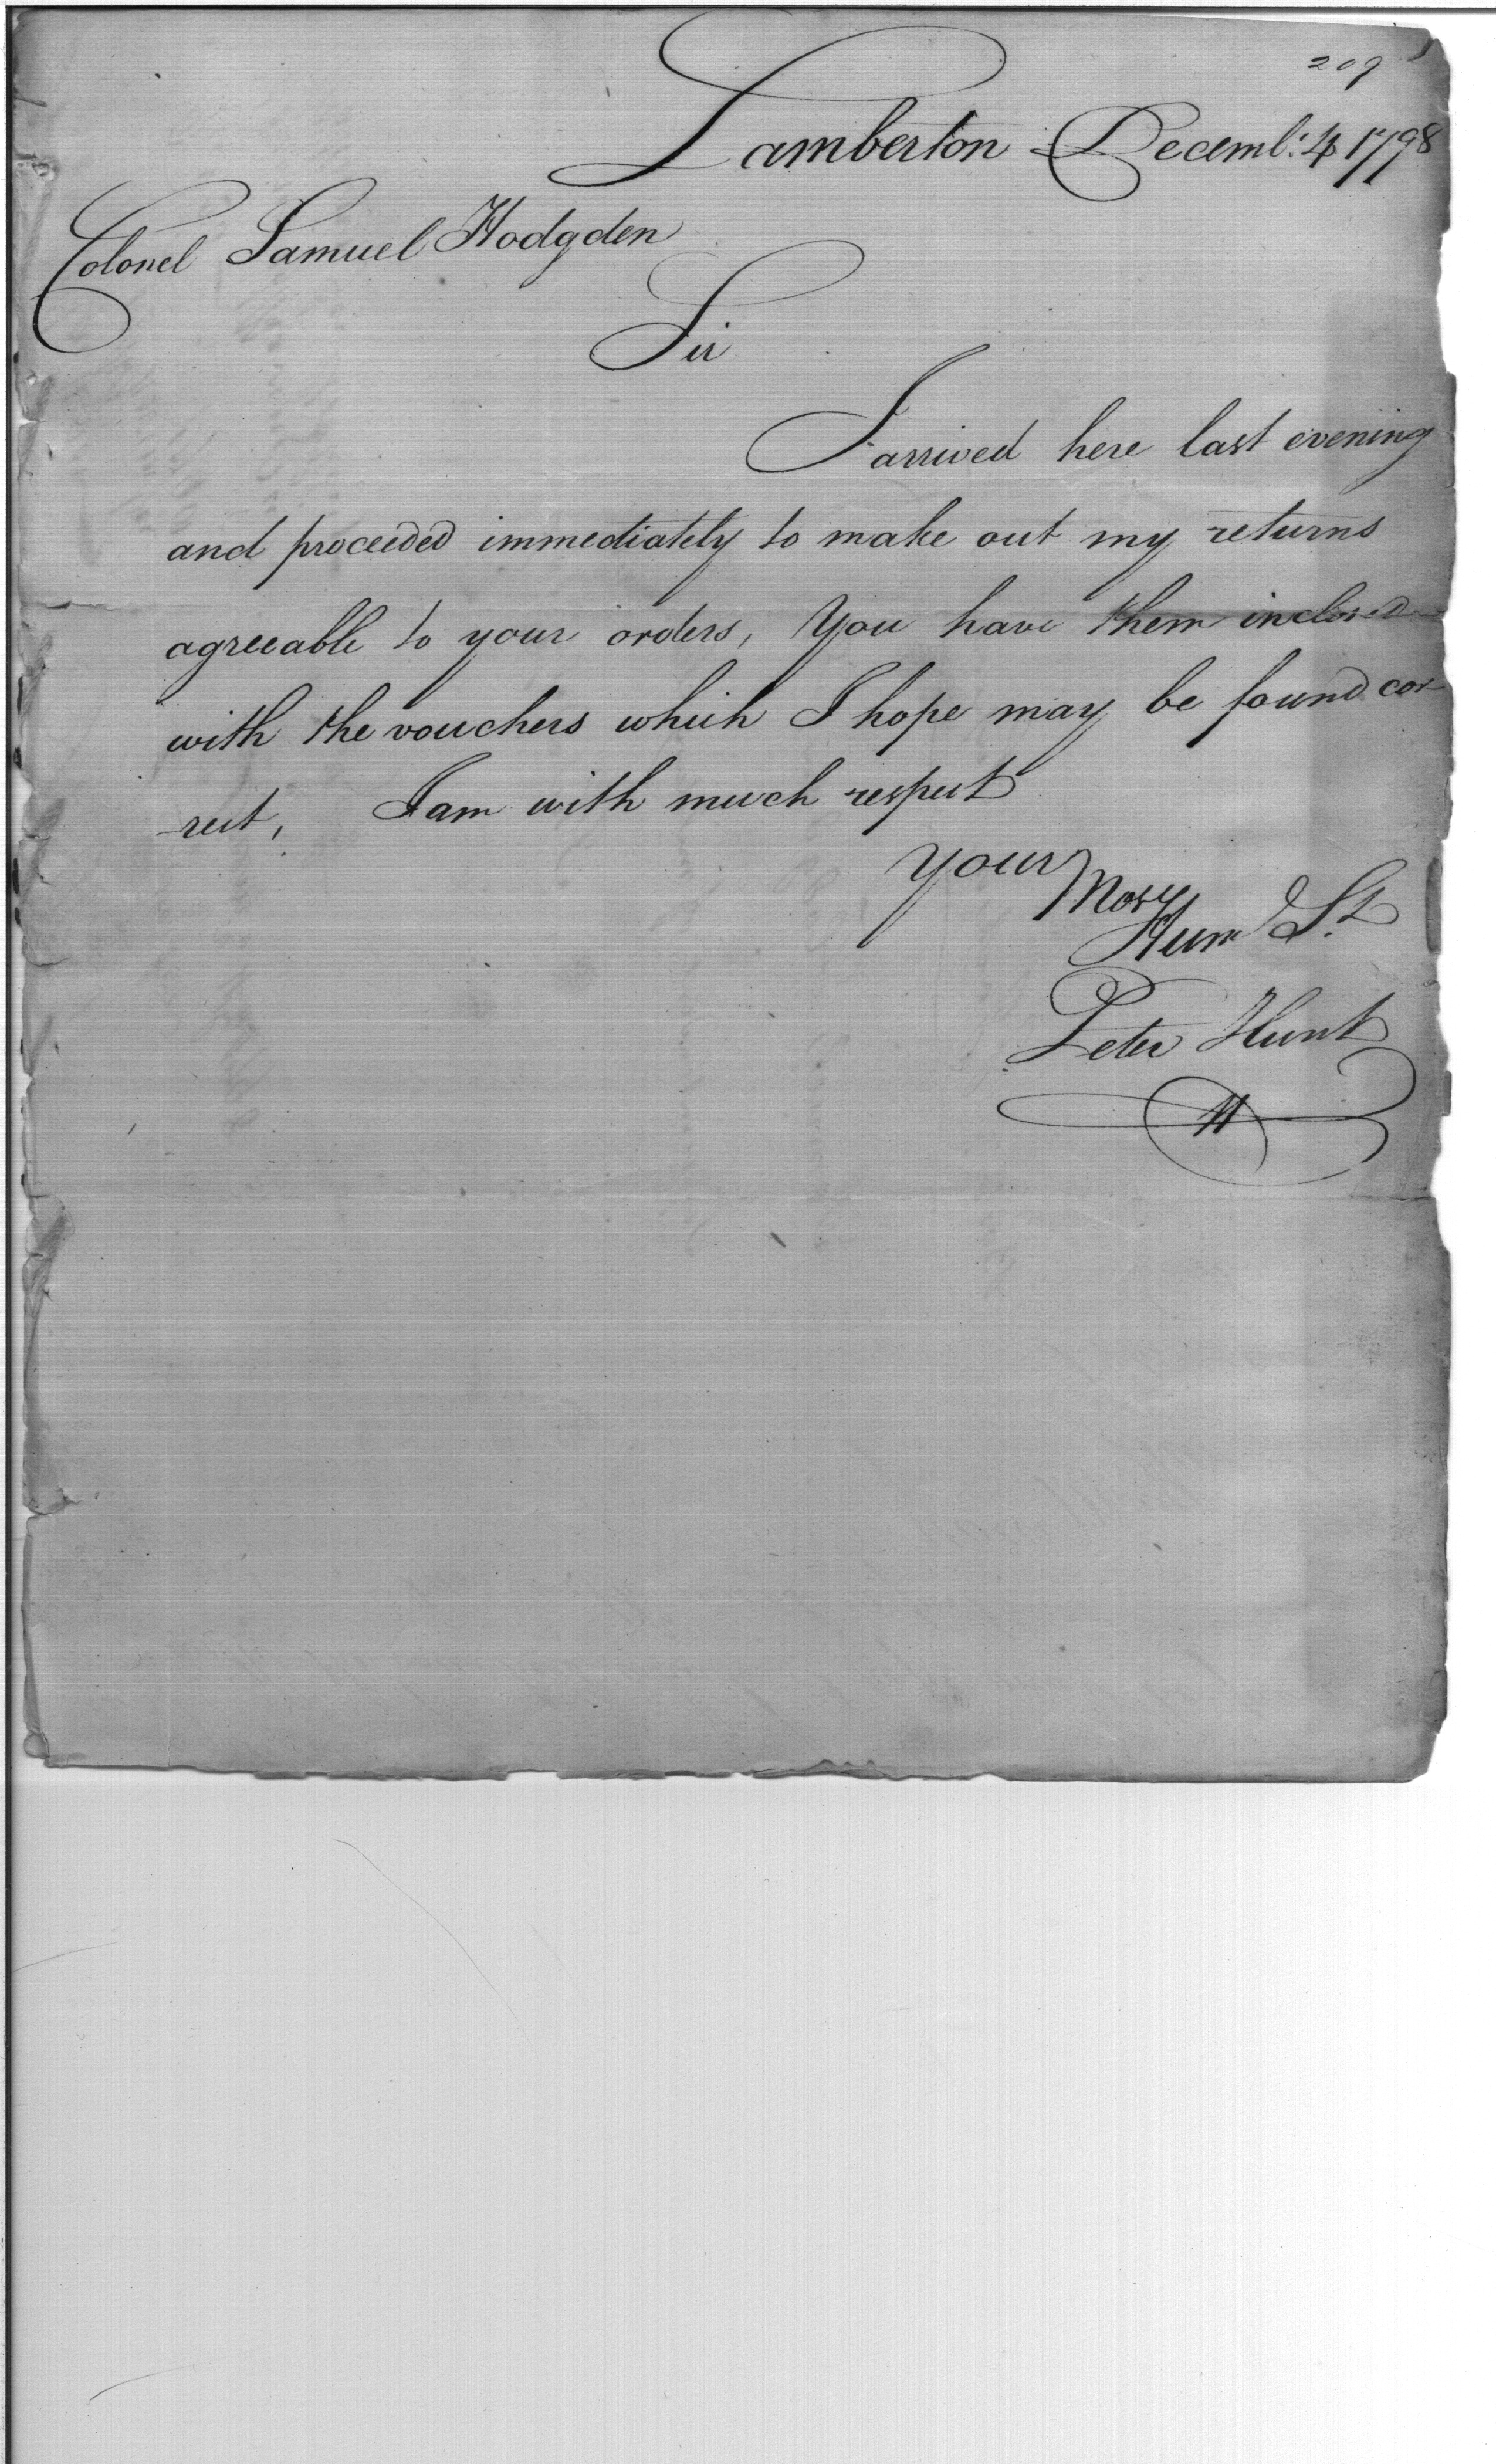 209
Lamberton Decemb.: 4 1798
Colonel Samuel Hodgden
Sir
I arrived here last evening
and proceeded immediately to make out my returns
agreeable to your orders, You have them inclosed
with the vouchers which I hope may be found cor-
-rect, I am with much respect
Your
Most
Hum St
Peter Hunt